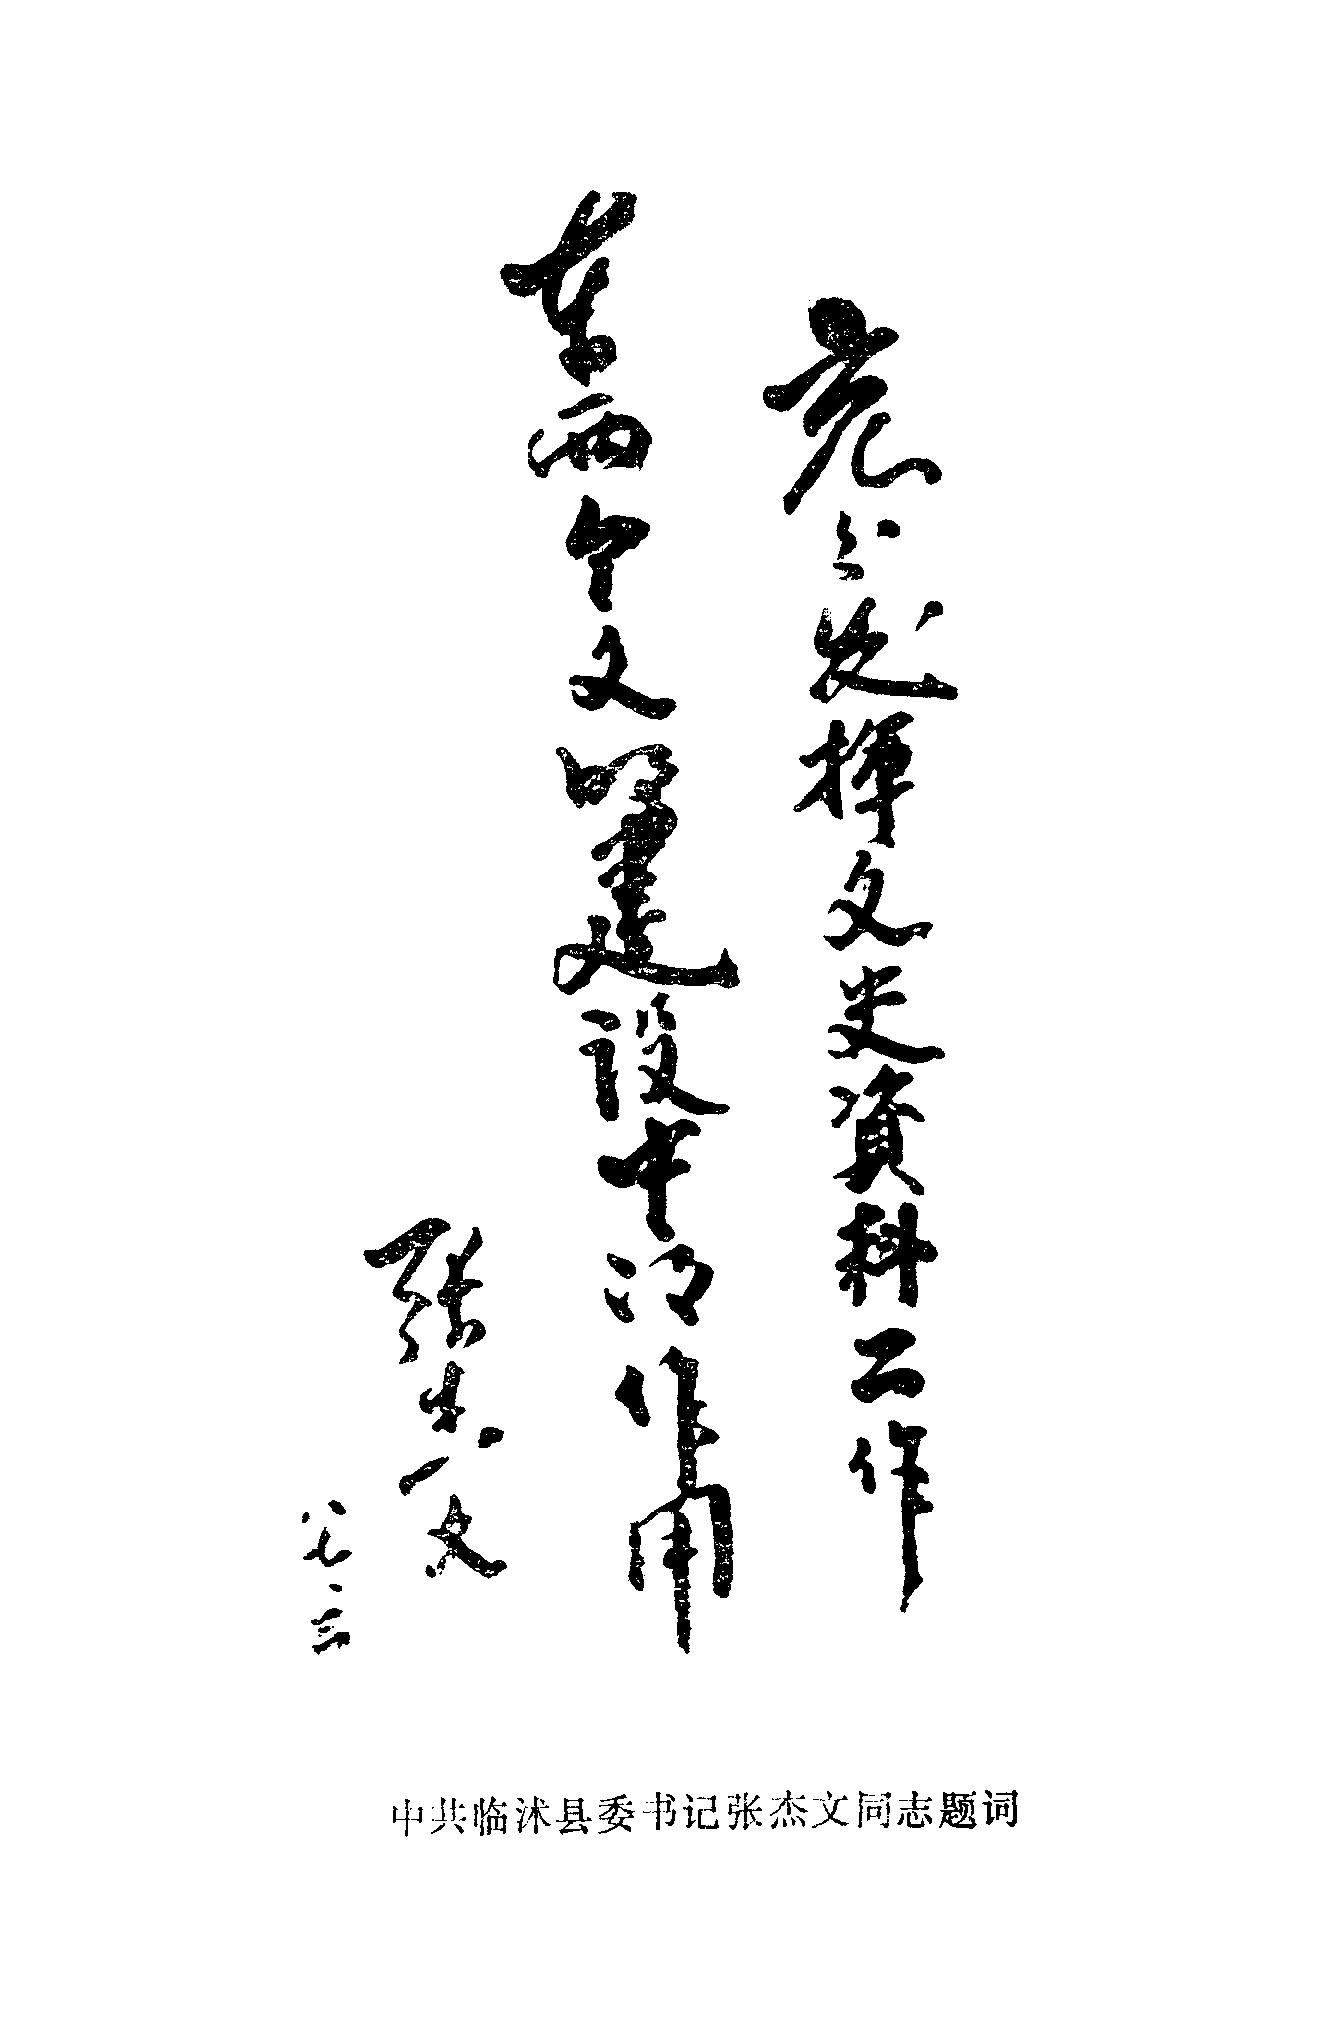 充分发挥文史资料工作
在两个文明建设中的作用
张杰文
八七·三
中共临沭县委书记张杰文同志题词